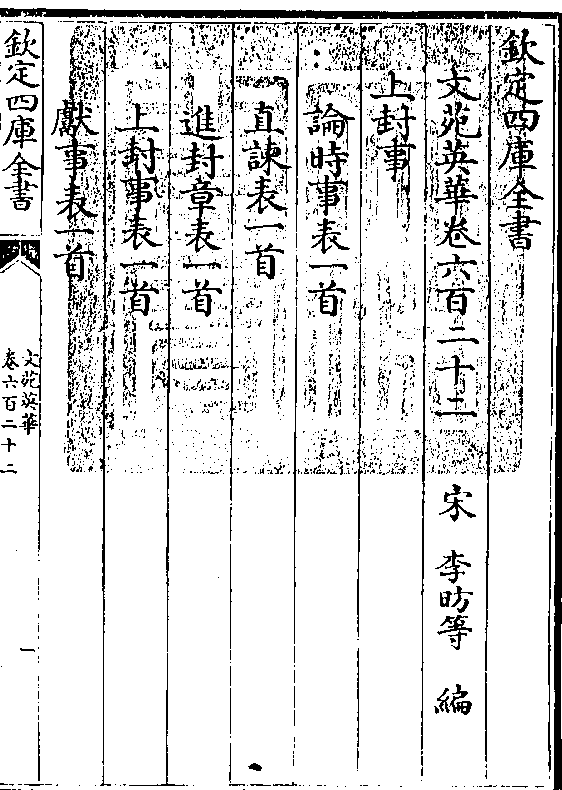 欽定四庫全書
文苑英華卷六百二十二
宋 李昉等 編
上封事
論時事表一首
直諫表一首
進封章表一首
上封事表一首
獻事表一首
欽定四庫全書
文苑英華
卷六百二十二
一